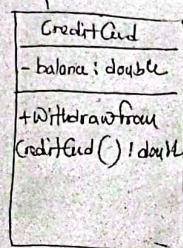 CreditCard
- balance : double
+ Withdrawfrom
CreditCard () : double